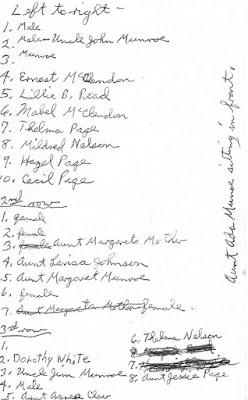 Left to right -
1. Male
2. Male - Uncle John Munroe
3. Munroe
4. Ernest McClendon
5. Lillie B. Read
6. Mabel McClendon
7. Thelma Page
8. Mildred Nelson
9. Hazel Page
10. Cecil Page
2nd row
1. female
2. female
3. female Aunt Margarets Mother
4. Aunt Lavisa Johnson
5. Aunt Margaret Munroe
6. female
7. Aunt Margarets Mother female.
3rd row
1.
2. Dorothy White
3. Uncle Jim Munroe
4. Male
5. Aunt
6. Thelma Nelson
7.
8. Aunt Jessie Page
Aunt Abs Munroe sitting in front.